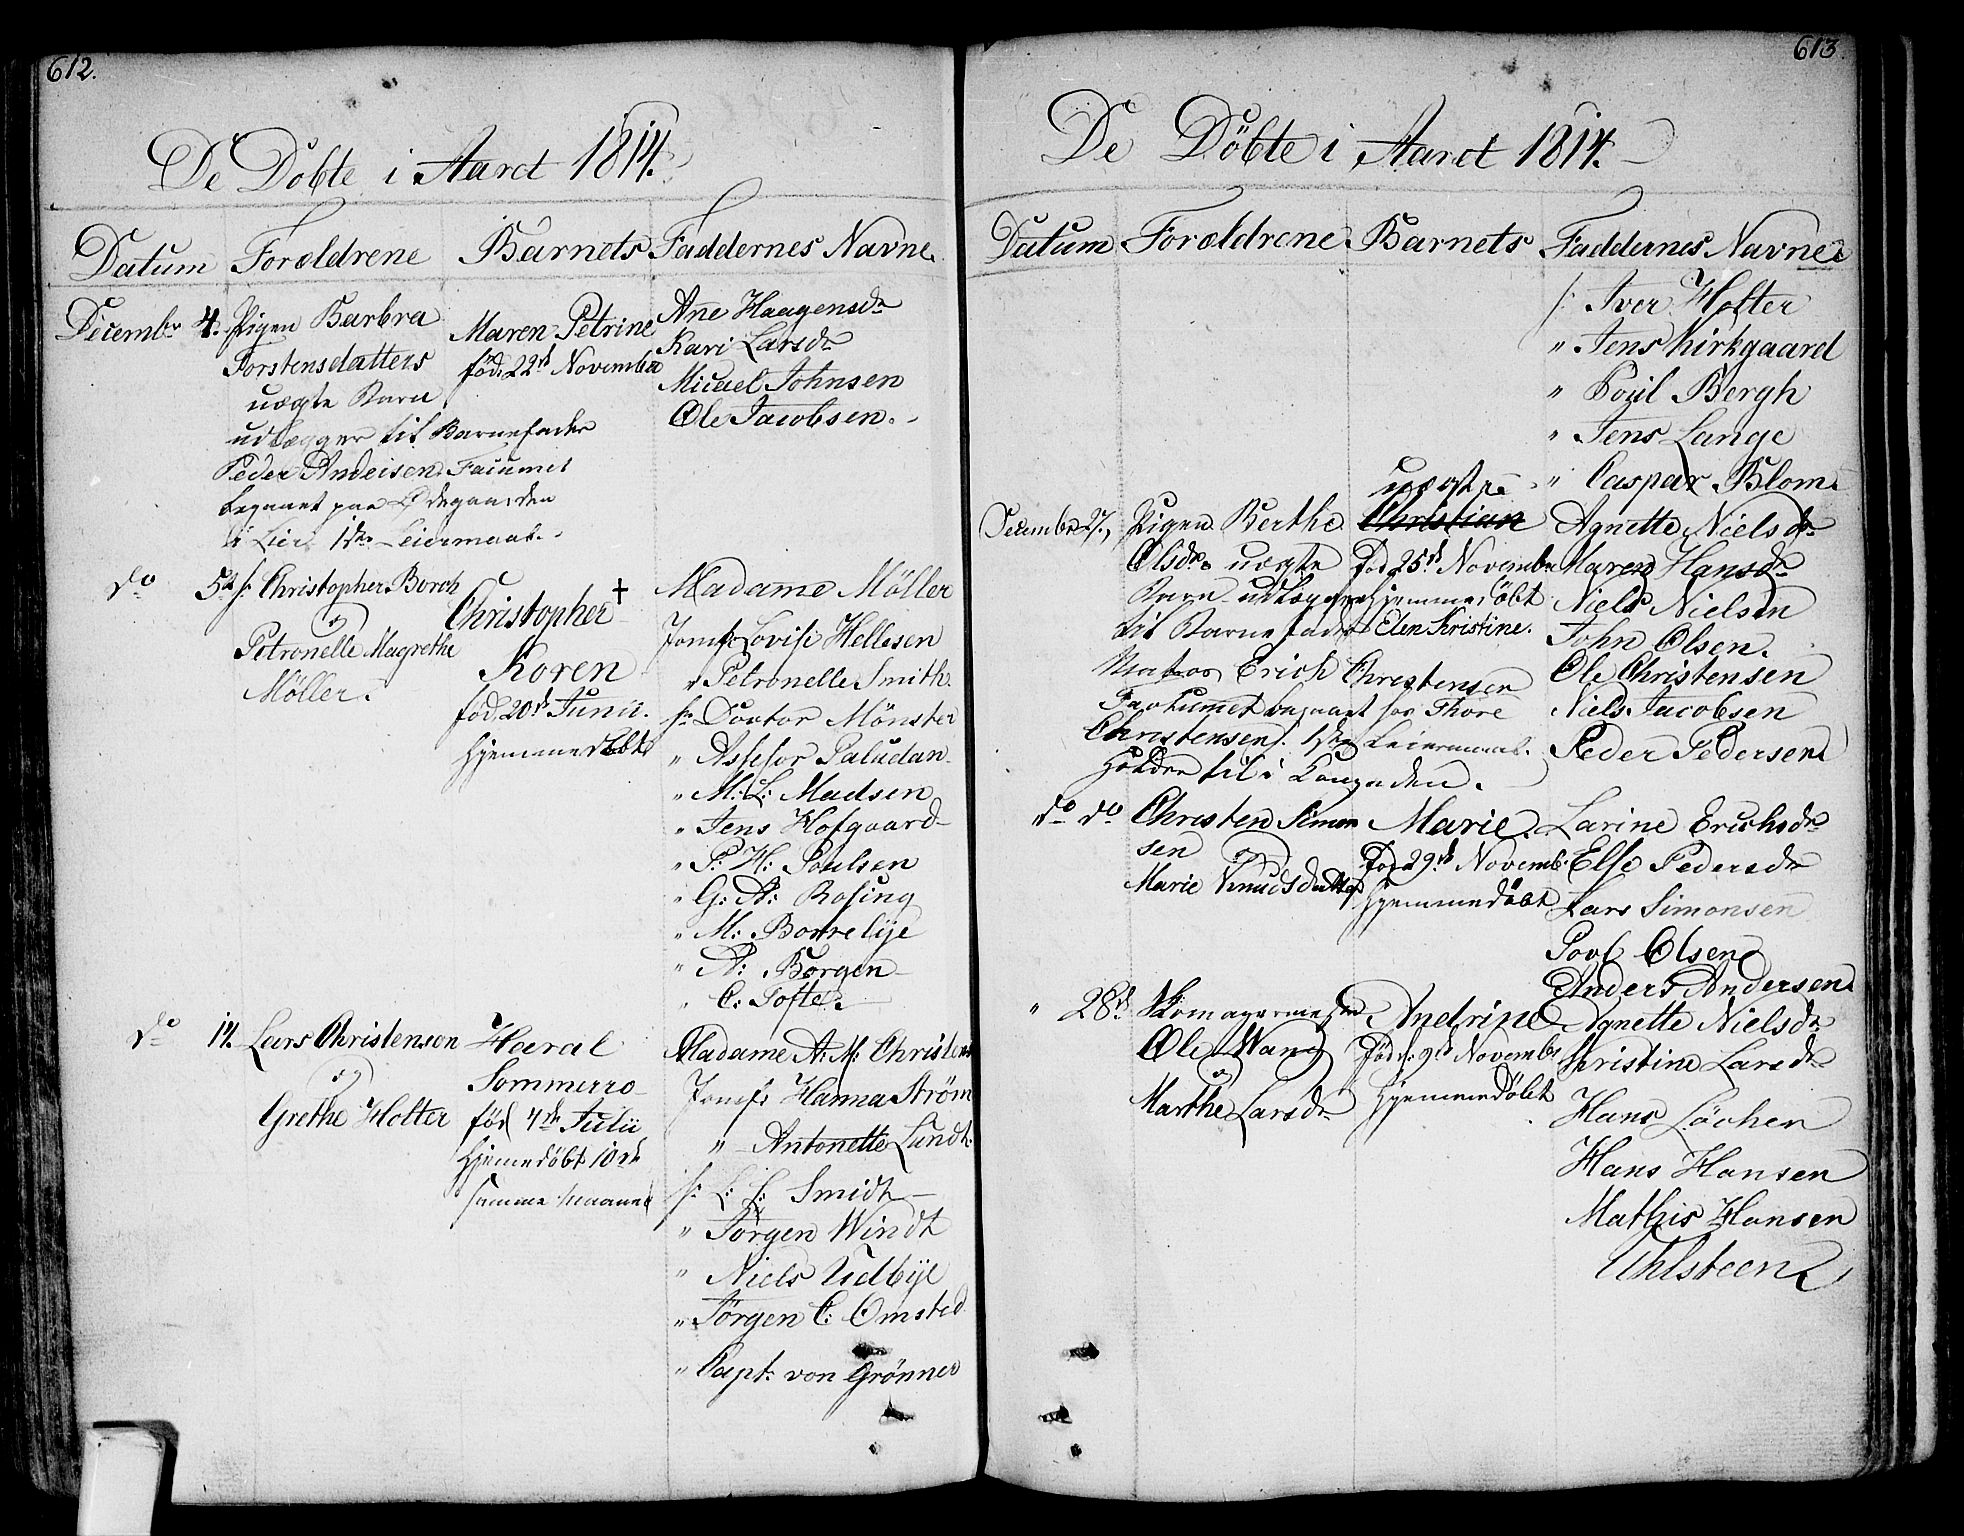 612.
De Döbte i Aaret 1814.
Datum Forældrene Barnets Faddernes Navne.
Decembr 4. Pigen Barbra
Torstensdatters
uægte Barn
udlægger til Barnefader
Peder Andersen. Factumet
begaaet paa Ødegaarden
i Lier 1ste Leiermaal.
Maren Petrine
föd. 22de November
Ane Haagensdr
Kari Larsdr
Micael Johnsen
Ole Jacobsen.
do 5te hr Christopher Borch
og
Petronelle Magrethe
Möller.
Christopher †
Koren
föd. 20de Junii.
Hjemmedöbt
Madame Möller
Jomfr Lovise Hellesen
" Petronelle Smith.
hr Doctor Mönster
" Assesor Paludan
" M: L: Madsen
" Jens Hofgaard
" P: H: Poulsen
" G: A: Rosing
" M: Borrebye
" A: Borgen
" C: Tofte.
do 14. Lars Christenson
og
Grethe Holter
Haral
Sommerro
föd 4de Julii
Hjemedöbt 10de
samme Maaned
Madame A: M: Christens
Jomfr Hanna Ström
" Antonette Lundt.
hr L: L: Smidt
" Jörgen Windt
" Niels Udbye
" Jörgen C: Omsted
" Capt: von Grönner
613
De Döbte i Aaret 1814.
Datum Forældrene Barnets Faddernes Navne.
hr Iver Holter
" Jens Kirkgaard
" Poul Bergh
" Jens Lange
" Caspar Blom.
Decembr 27. Pigen Berthe
Olsdr. uægte
Barn udlægger
til Barnefader
Matros Erich Christensen
Factumet begaaet hos Thore
Christensen. 1ste Leiermaal.
Holder til i Langaden.
uægte
Christian
Föd 25de November
Hjemmedöbt
Elen Kristine.
Agnette Nielsdr
Maren Hansdr
Niels Nielsen
John Olsen.
Ole Christensen
Niels Jacobsen
Peder Pedersen
do do Christen Simon
sen
og
Marie Knudsdatter
Marie.
Föd 29de Novemb.
Hjemmedöbt
Larine Erichsdr
Else Pedersdr
Lars Simonsen
Povl Olsen
Anders Andersen.
" 28de Skomagermester
Ole Wang
og
Marthe Larsdr
Andrine
Föd: 9de Novembr
Hjemmedöbt
Agnette Nielsdr
Kristine Larsdr
Hans Löchen
Hans Hansen
Mathis Hansen
Uhlsteen